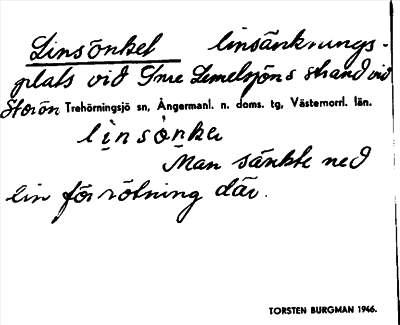 Linsönket linsänknings-
plats vid Inre Lemelsjöns strand vid
Storön Trehörningsjö sn, Ångermanl. n. doms. tg, Västernorrl. län.
linsönke
Man sänkte ned
lin för rötning där.
TORSTEN BURGMAN 1946.